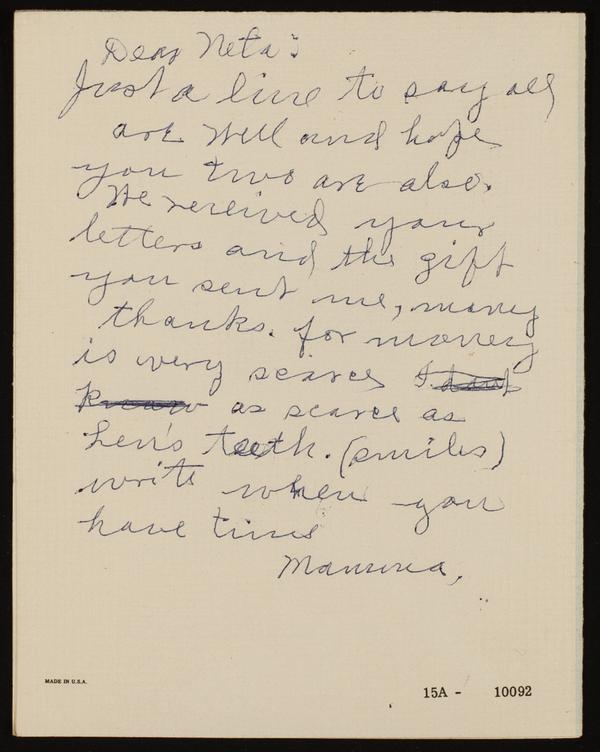 Dear Neta:
Just a line to say all
are well and hope
you two are also.
We received your
letters and the gift
you sent me, many
thanks. for money
is very scarce I dont
know as scarce as
hen's teeth. (smiles)
write when you
have time
Mamma,
MADE IN U.S.A.
15A - 10092